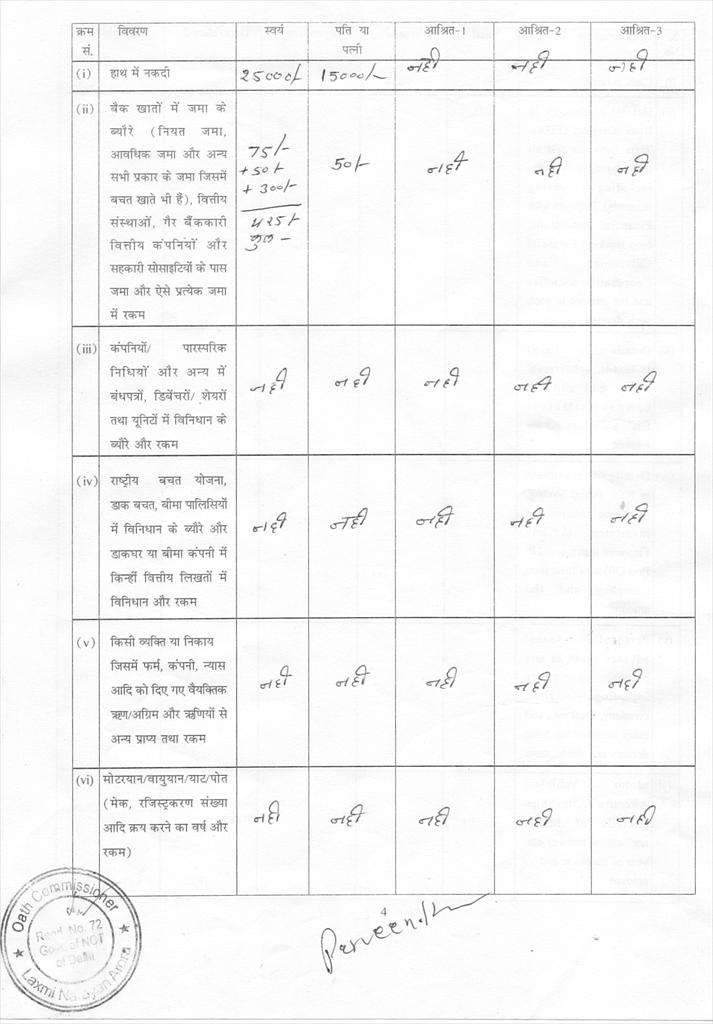 क्रम सं. विवरण स्वयं पति या पत्नी आश्रित-1 आश्रित-2 आश्रित-3
(i) हाथ में नकदी 25000/- 15000/- नहीं नहीं नहीं
(ii) बैक खातों में जमा के
ब्यौरे (नियत जमा,
आवधिक जमा और अन्य
सभी प्रकार के जमा जिसमें
बचत खाते भी हैं), वित्तीय
संस्थाओं, गैर बैंककारी
वित्तीय कंपनियों और
सहकारी सोसाइटियों के पास
जमा और ऐसे प्रत्येक जमा
में रकम
75/-
+50/-
+300/-
425/-
कुल -
50/- नहीं नहीं नहीं
(iii) कंपनियों/ पारस्परिक
निधियों और अन्य में
बंधपत्रों, डिबेंचरों/ शेयरों
तथा यूनिटों में विनिधान के
ब्यौरे और रकम
नहीं नहीं नहीं नहीं नहीं
(iv) राष्ट्रीय बचत योजना,
डाक बचत, बीमा पालिसियों
में विनिधान के ब्यौरे और
डाकघर या बीमा कंपनी में
किन्हीं वित्तीय लिखतों में
विनिधान और रकम
नहीं नहीं नहीं नहीं नहीं
(v) किसी व्यक्ति या निकाय
जिसमें फर्म, कंपनी, न्यास
आदि को दिए गए वैयक्तिक
ऋण/अग्रिम और ऋणियों से
अन्य प्राप्य तथा रकम
नहीं नहीं नहीं नहीं नहीं
(vi) मोटरयान/वायुयान/याट/पोत
(मेक, रजिस्ट्रकरण संख्या
आदि क्रय करने का वर्ष और
रकम)
नहीं नहीं नहीं नहीं नहीं
Oath Commissioner
Regd. No. 72
Govt. of NCT
of Delhi
Laxmi Narayan Arora